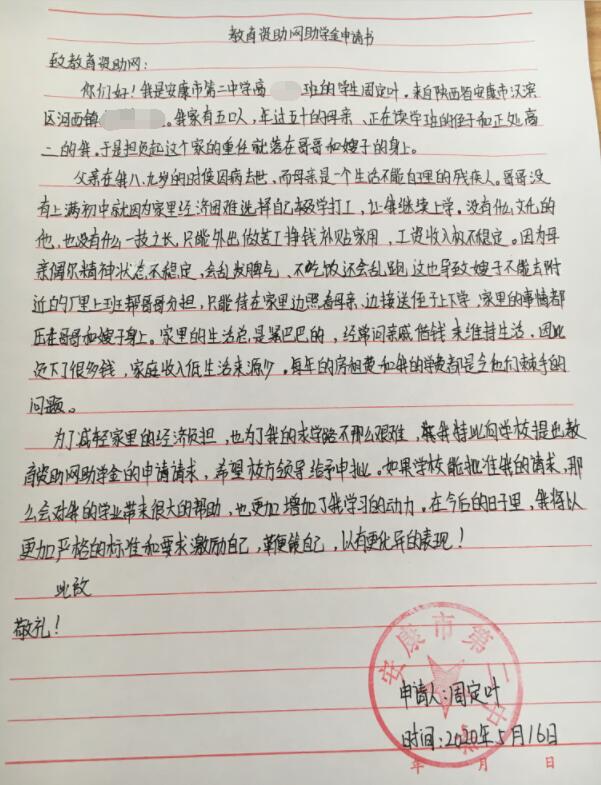 教育资助网助学金申请书
致教育资助网:
你们好!我是安康市第二中学高 班的学生周定叶,来自陕西省安康市汉滨
区河西镇 。我家有五口人,年过五十的母亲、正在读学班的侄子和正处高
二的我。于是担负起这个家的重任就落在哥哥和嫂子的身上。
父亲在我八、九岁的时侯因病去世,而母亲是一个生活不能自理的残疾人。哥哥没
有上满初中就因为家里经济困难选择自己辍学打工,让我继续上学。没有什么文化的
他,也没有什么一技之长,只能外出做苦工挣钱补贴家用,工资收入极不稳定。因为母
亲偶尔精神状态不稳定,会乱发脾气、不吃饭还会乱跑,这也导致嫂子不能去附
近的厂里上班帮哥哥分担,只能待在家里边照看母亲,边接送侄子上下学,家里的事情都
压在哥哥和嫂子身上。家里的生活总是紧巴巴的,经常问亲戚借钱来维持生活,因此
欠下了很多钱,家庭收入低生活来源少。每年的房租费和我的学费都是令他们棘手的
问题。
为了减轻家里的经济负担,也为了我的求学路不那么艰难,我特此向学校提出教
育资助网助学金的申请请求,希望校方领导给予审批。如果学校能批准我的请求,那
么会对我的学业带来很大的帮助,也更加增加了我学习的动力。在今后的日子里,我将以
更加严格的标准和要求激励自己,鞭策自己,以有更优异的表现!
此致
敬礼!
安康市第二中
申请人:周定叶
时间:2020年5月16日
年 月 日